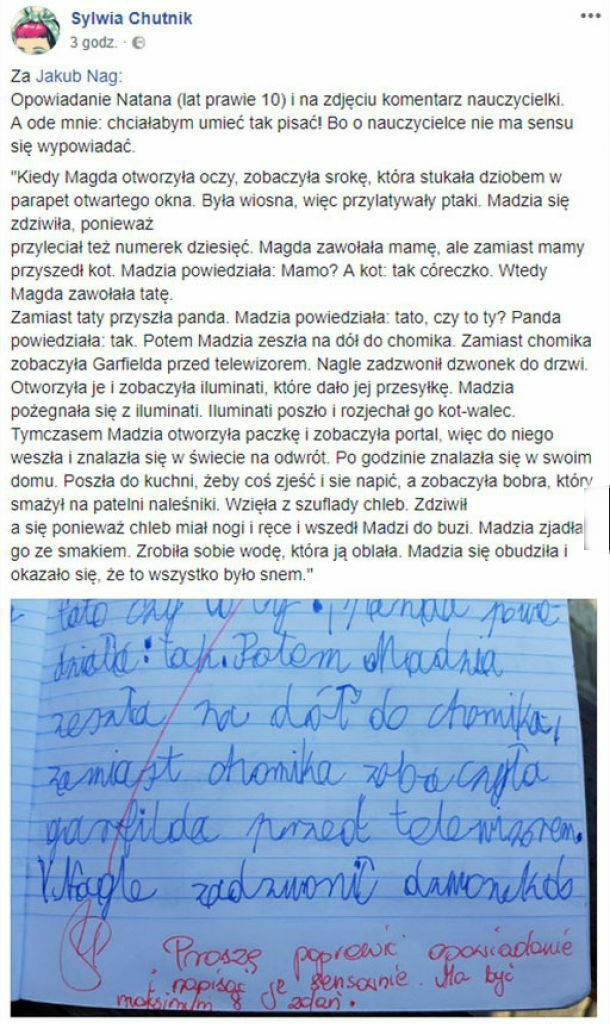 Sylwia Chutnik
3 godz. ·
Za Jakub Nag:
Opowiadanie Natana (lat prawie 10) i na zdjęciu komentarz nauczycielki.
A ode mnie: chciałabym umieć tak pisać! Bo o nauczycielce nie ma sensu
się wypowiadać.
"Kiedy Magda otworzyła oczy, zobaczyła srokę, która stukała dziobem w
parapet otwartego okna. Była wiosna, więc przylatywały ptaki. Madzia się
zdziwiła, ponieważ
przyleciał też numerek dziesięć. Magda zawołała mamę, ale zamiast mamy
przyszedł kot. Madzia powiedziała: Mamo? A kot: tak córeczko. Wtedy
Magda zawołała tatę.
Zamiast taty przyszła panda. Madzia powiedziała: tato, czy to ty? Panda
powiedziała: tak. Potem Madzia zeszła na dół do chomika. Zamiast chomika
zobaczyła Garfielda przed telewizorem. Nagle zadzwonił dzwonek do drzwi.
Otworzyła je i zobaczyła iluminati, które dało jej przesyłkę. Madzia
pożegnała się z iluminati. Iluminati poszło i rozjechał go kot-walec.
Tymczasem Madzia otworzyła paczkę i zobaczyła portal, więc do niego
weszła i znalazła się w świecie na odwrót. Po godzinie znalazła się w swoim
domu. Poszła do kuchni, żeby coś zjeść i sie napić, a zobaczyła bobra, który
smażył na patelni naleśniki. Wzięła z szuflady chleb. Zdziwił
a się ponieważ chleb miał nogi i ręce i wszedł Madzi do buzi. Madzia zjadła
go ze smakiem. Zrobiła sobie wodę, która ją oblała. Madzia się obudziła i
okazało się, że to wszystko było snem."
tato czy ty. Panda powie
działa: tak. Potem Madzia
zeszła na dół do chomika,
zamiast chomika zobaczyła
garfilda przed telewizorem.
Nagle zadzwonił dzwonek do
Proszę poprawić opowiadanie
i napisać je sensownie. Ma być
maksimum 8 zdań.